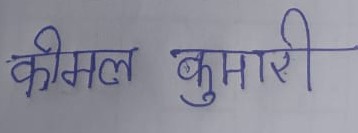 कीमल कुमारी